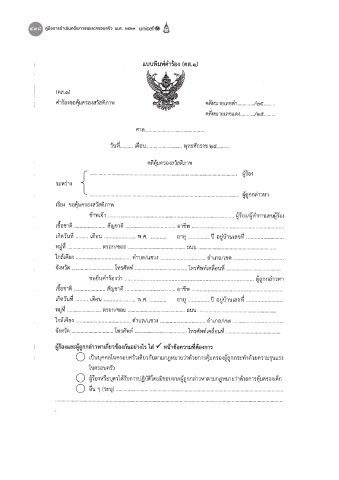 ๔๓๘ คู่มือการดำเนินคดีเยาวชนและครอบครัว พ.ศ. ๒๕๖๑ unicef
แบบพิมพ์คำร้อง (คส.๑)
(คส.๑)
คำร้องขอคุ้มครองสวัสดิภาพ
คดีหมายเลขดำ............/๒๕........
คดีหมายเลขแดง............/๒๕........
ศาล..............................
วันที่......... เดือน..................... พุทธศักราช ๒๕........
คดีคุ้มครองสวัสดิภาพ
ผู้ร้อง
ระหว่าง
ผู้ถูกกล่าวหา
เรื่อง ขอคุ้มครองสวัสดิภาพ
ข้าพเจ้า .............................. ผู้ร้อง/ผู้ทำการแทนผู้ร้อง
เชื้อชาติ ............... สัญชาติ ............... อาชีพ ...............
เกิดวันที่ ....... เดือน ............... พ.ศ. ............ อายุ ......... ปี อยู่บ้านเลขที่ ...............
หมู่ที่ ............... ตรอก/ซอย ............... ถนน ...............
ใกล้เคียง ............... ตำบล/แขวง ............... อำเภอ/เขต ...............
จังหวัด ............... โทรศัพท์ ............... โทรศัพท์เคลื่อนที่ ...............
ขอยื่นคำร้องว่า .............................. ผู้ถูกกล่าวหา
เชื้อชาติ ............... สัญชาติ ............... อาชีพ ...............
เกิดวันที่ ....... เดือน ............... พ.ศ. ............ อายุ ......... ปี อยู่บ้านเลขที่ ...............
หมู่ที่ ............... ตรอก/ซอย ............... ถนน ...............
ใกล้เคียง ............... ตำบล/แขวง ............... อำเภอ/เขต ...............
จังหวัด ............... โทรศัพท์ ............... โทรศัพท์เคลื่อนที่ ...............
ผู้ร้องและผู้ถูกกล่าวหาเกี่ยวข้องกันอย่างไร ใส่ ✓ หน้าข้อความที่ต้องการ
เป็นบุคคลในครอบครัวเดียวกันตามกฎหมายว่าด้วยการคุ้มครองผู้ถูกกระทำด้วยความรุนแรง
ในครอบครัว
ผู้ร้องหรือบุตรได้รับการปฏิบัติโดยมิชอบจากผู้ถูกกล่าวหาตามกฎหมายว่าด้วยการคุ้มครองเด็ก
อื่น ๆ (ระบุ) ..............................